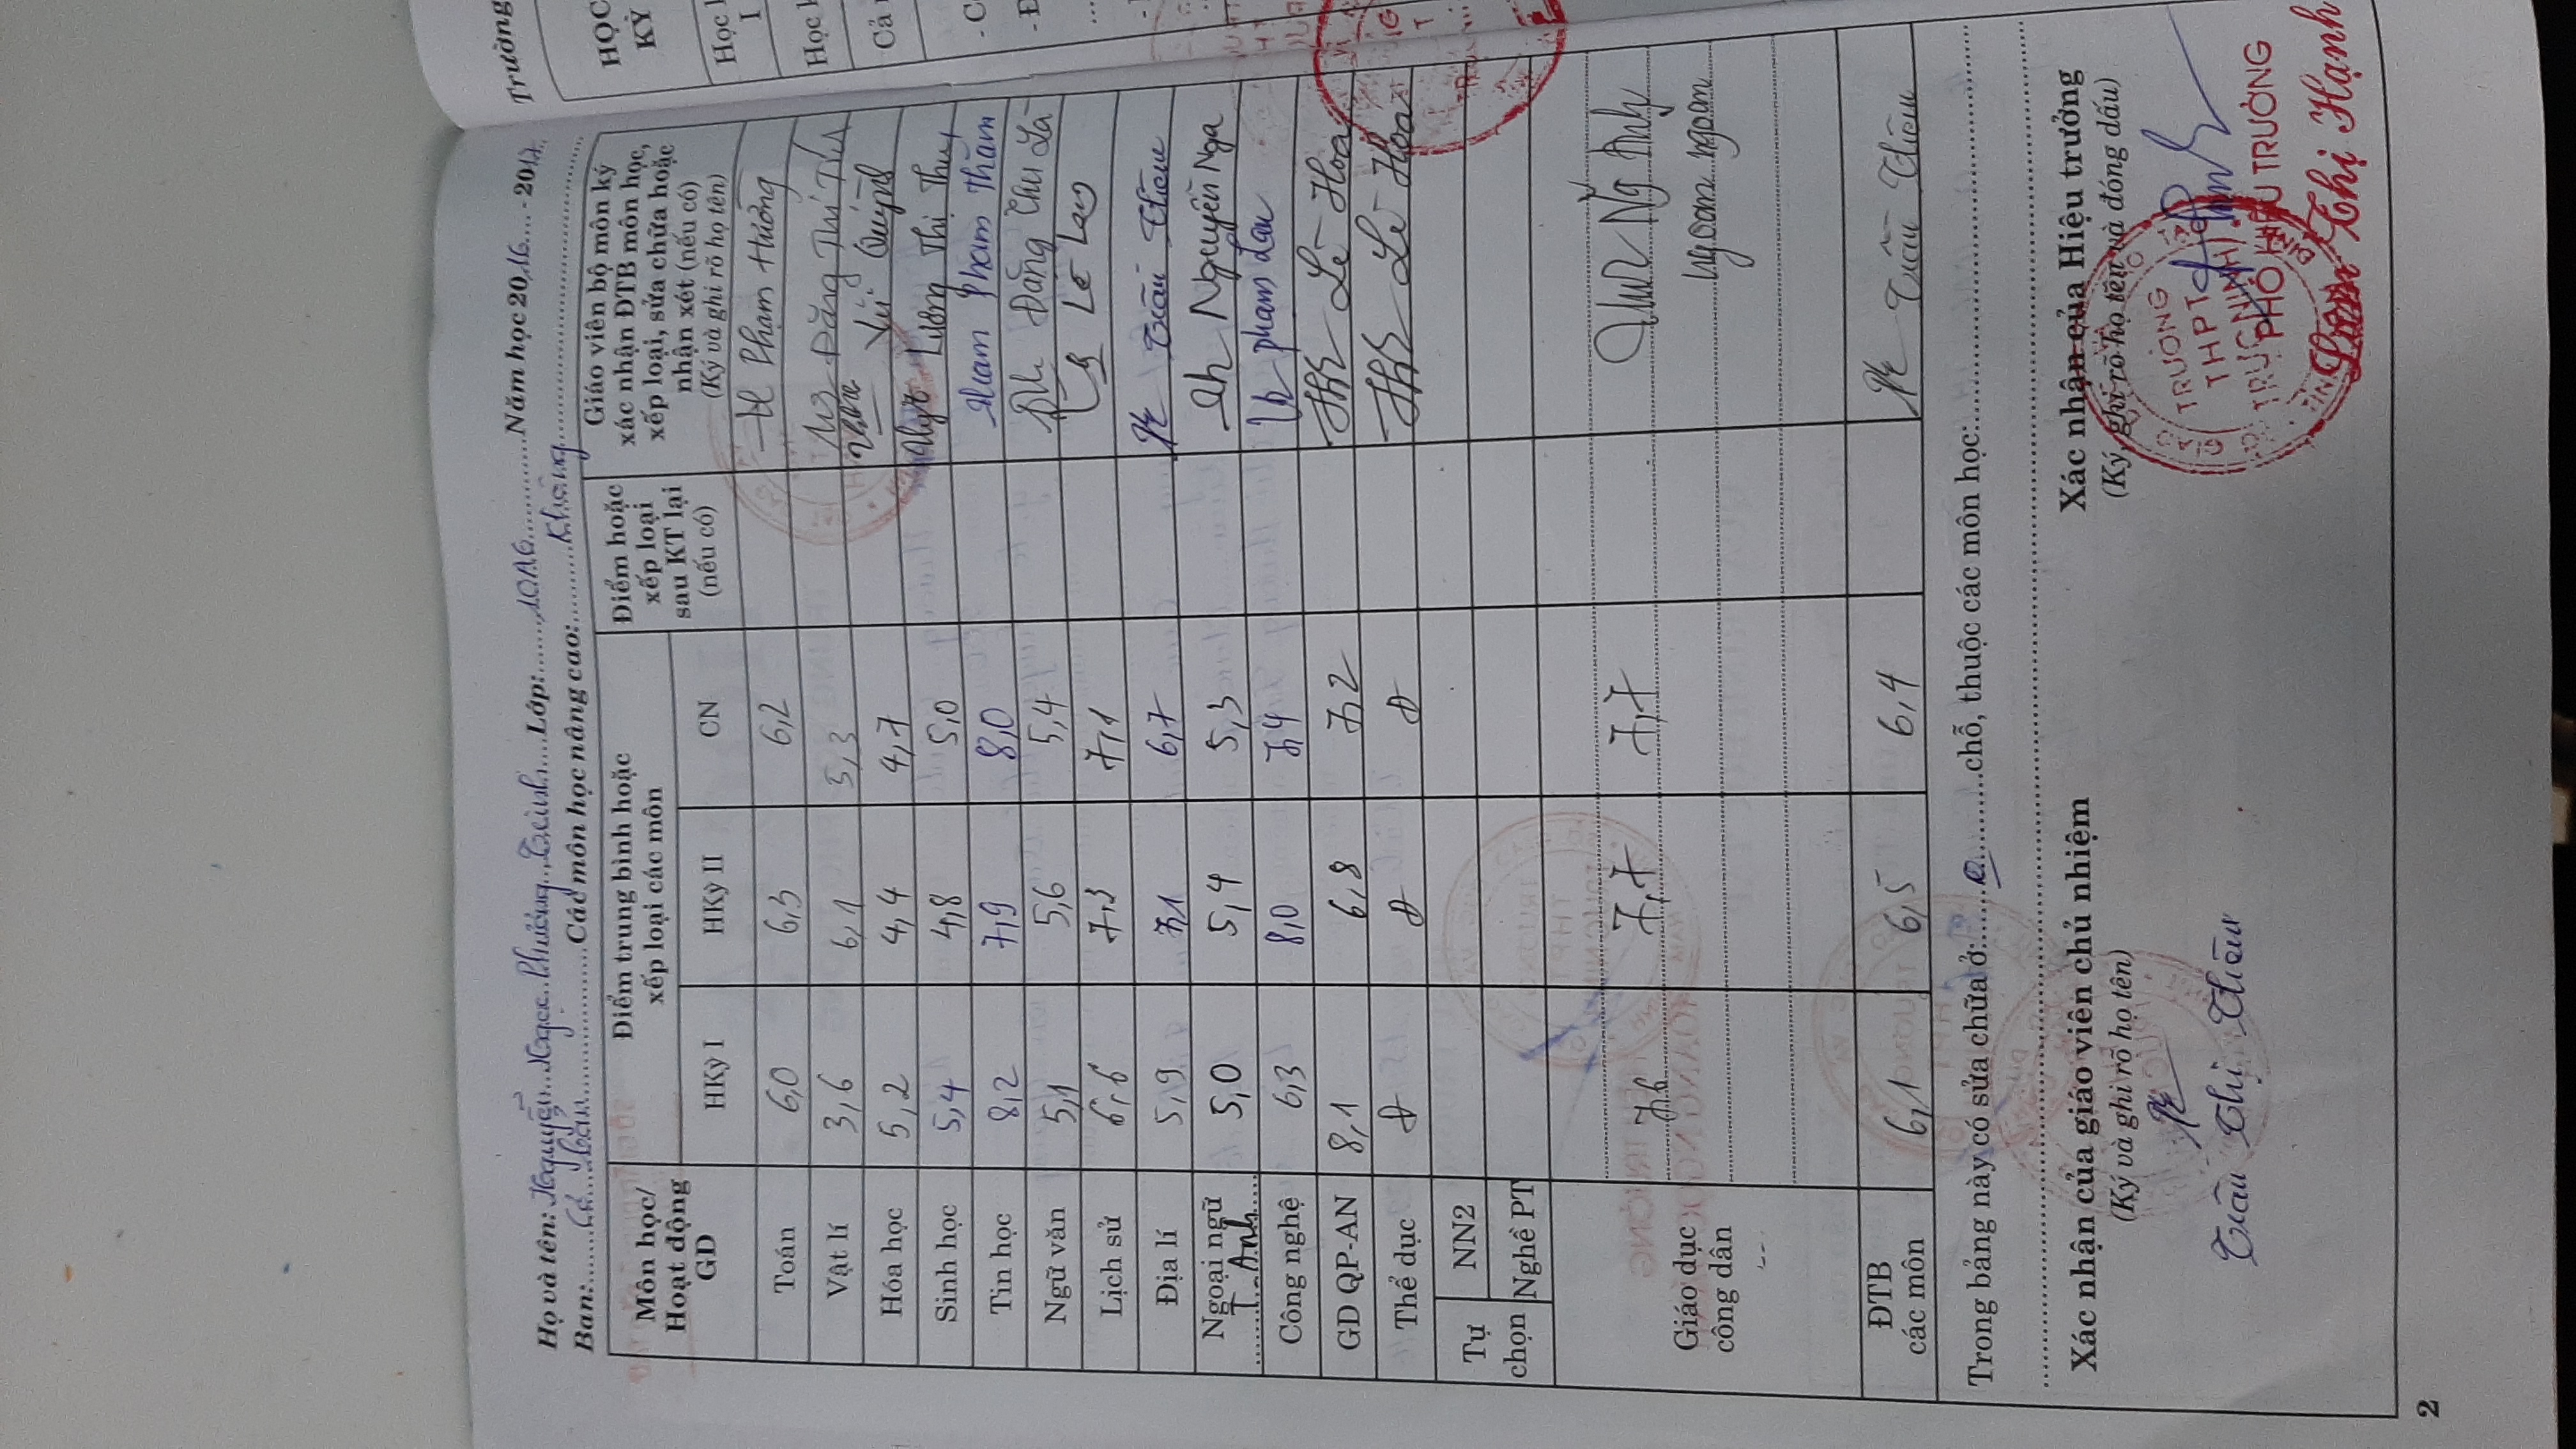 Họ và tên: Nguyễn Ngọc Phương Trinh Lớp: 10A6 Năm học 2016 - 2017
Ban: Cơ bản Các môn học nâng cao: Không
Môn học/ Hoạt động GD
Điểm trung bình hoặc xếp loại các môn
Điểm hoặc xếp loại sau KT lại (nếu có)
Giáo viên bộ môn ký xác nhận ĐTB môn học, xếp loại, sửa chữa hoặc nhận xét (nếu có) (Ký và ghi rõ họ tên)
HKỳ I HKỳ II CN
Toán 6,0 6,3 6,2 Phạm Hường
Vật lí 3,6 6,1 5,3 Đặng Thị
Hóa học 5,2 4,4 4,7 Vũ Quỳnh
Sinh học 5,4 4,8 5,0 Lương Thị Thuỷ
Tin học 8,2 7,9 8,0 Phạm Thắm
Ngữ văn 5,1 5,6 5,4 Đặng Thu Là
Lịch sử 6,6 7,3 7,1 Lê
Địa lí 5,9 7,1 6,7 Trần Thêu
Ngoại ngữ 5,0 5,4 5,3 Nguyễn Nga
T. Anh
Công nghệ 6,3 8,0 7,4 Phạm Lan
GD QP-AN 8,1 6,8 7,2 Lê Hoa
Thể dục Đ Đ Đ Lê Hoa
Tự chọn
NN2
Nghề PT
Giáo dục công dân 7,6 7,7 7,7 Ng Anh
ngoan ngoan
ĐTB các môn 6,1 6,5 6,4 Trần Thêu
Trong bảng này có sửa chữa ở: 0 chỗ, thuộc các môn học:
Xác nhận của giáo viên chủ nhiệm
(Ký và ghi rõ họ tên)
Trần Thị Thêu
Xác nhận của Hiệu trưởng
(Ký, ghi rõ họ tên và đóng dấu)
TRƯỜNG
THPT
TRỰC NINH
PHÓ HIỆU TRƯỞNG
Lâm Thị Hạnh
2
Trường
HỌC
KỲ
Học
I
Học
Cả